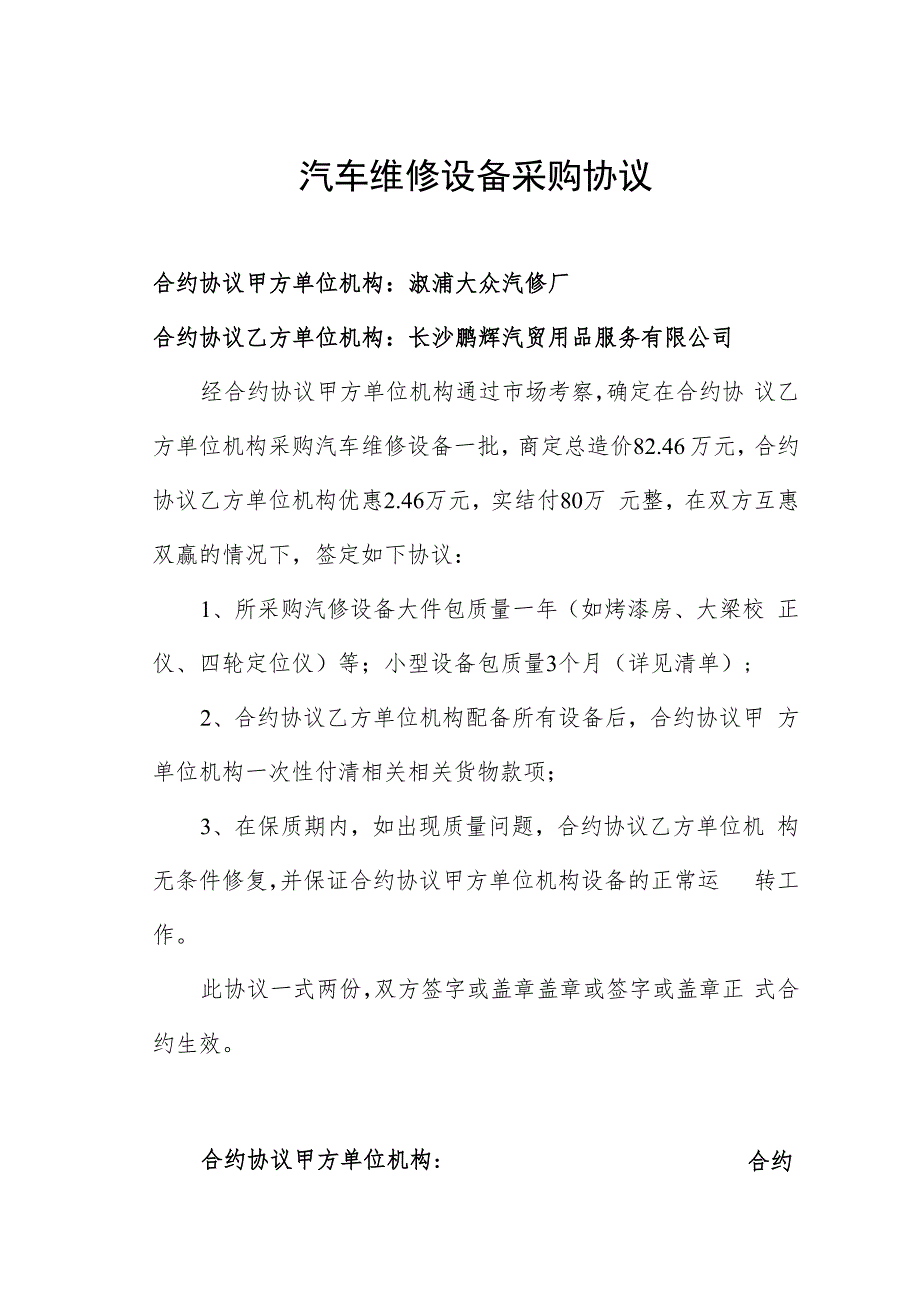 汽车维修设备采购协议
合约协议甲方单位机构：淑浦大众汽修厂
合约协议乙方单位机构：长沙鹏辉汽贸用品服务有限公司
经合约协议甲方单位机构通过市场考察,确定在合约协 议乙
方单位机构采购汽车维修设备一批，商定总造价82.46万元，合约
协议乙方单位机构优惠2.46万元，实结付80万 元整，在双方互惠
双赢的情况下，签定如下协议：
1、所采购汽修设备大件包质量一年（如烤漆房、大梁校 正
仪、四轮定位仪）等；小型设备包质量3个月（详见清单）；
2、合约协议乙方单位机构配备所有设备后，合约协议甲 方
单位机构一次性付清相关相关货物款项；
3、在保质期内，如出现质量问题，合约协议乙方单位机 构
无条件修复,并保证合约协议甲方单位机构设备的正常运 转工
作。
此协议一式两份,双方签字或盖章盖章或签字或盖章正 式合
约生效。
合约协议甲方单位机构： 合约